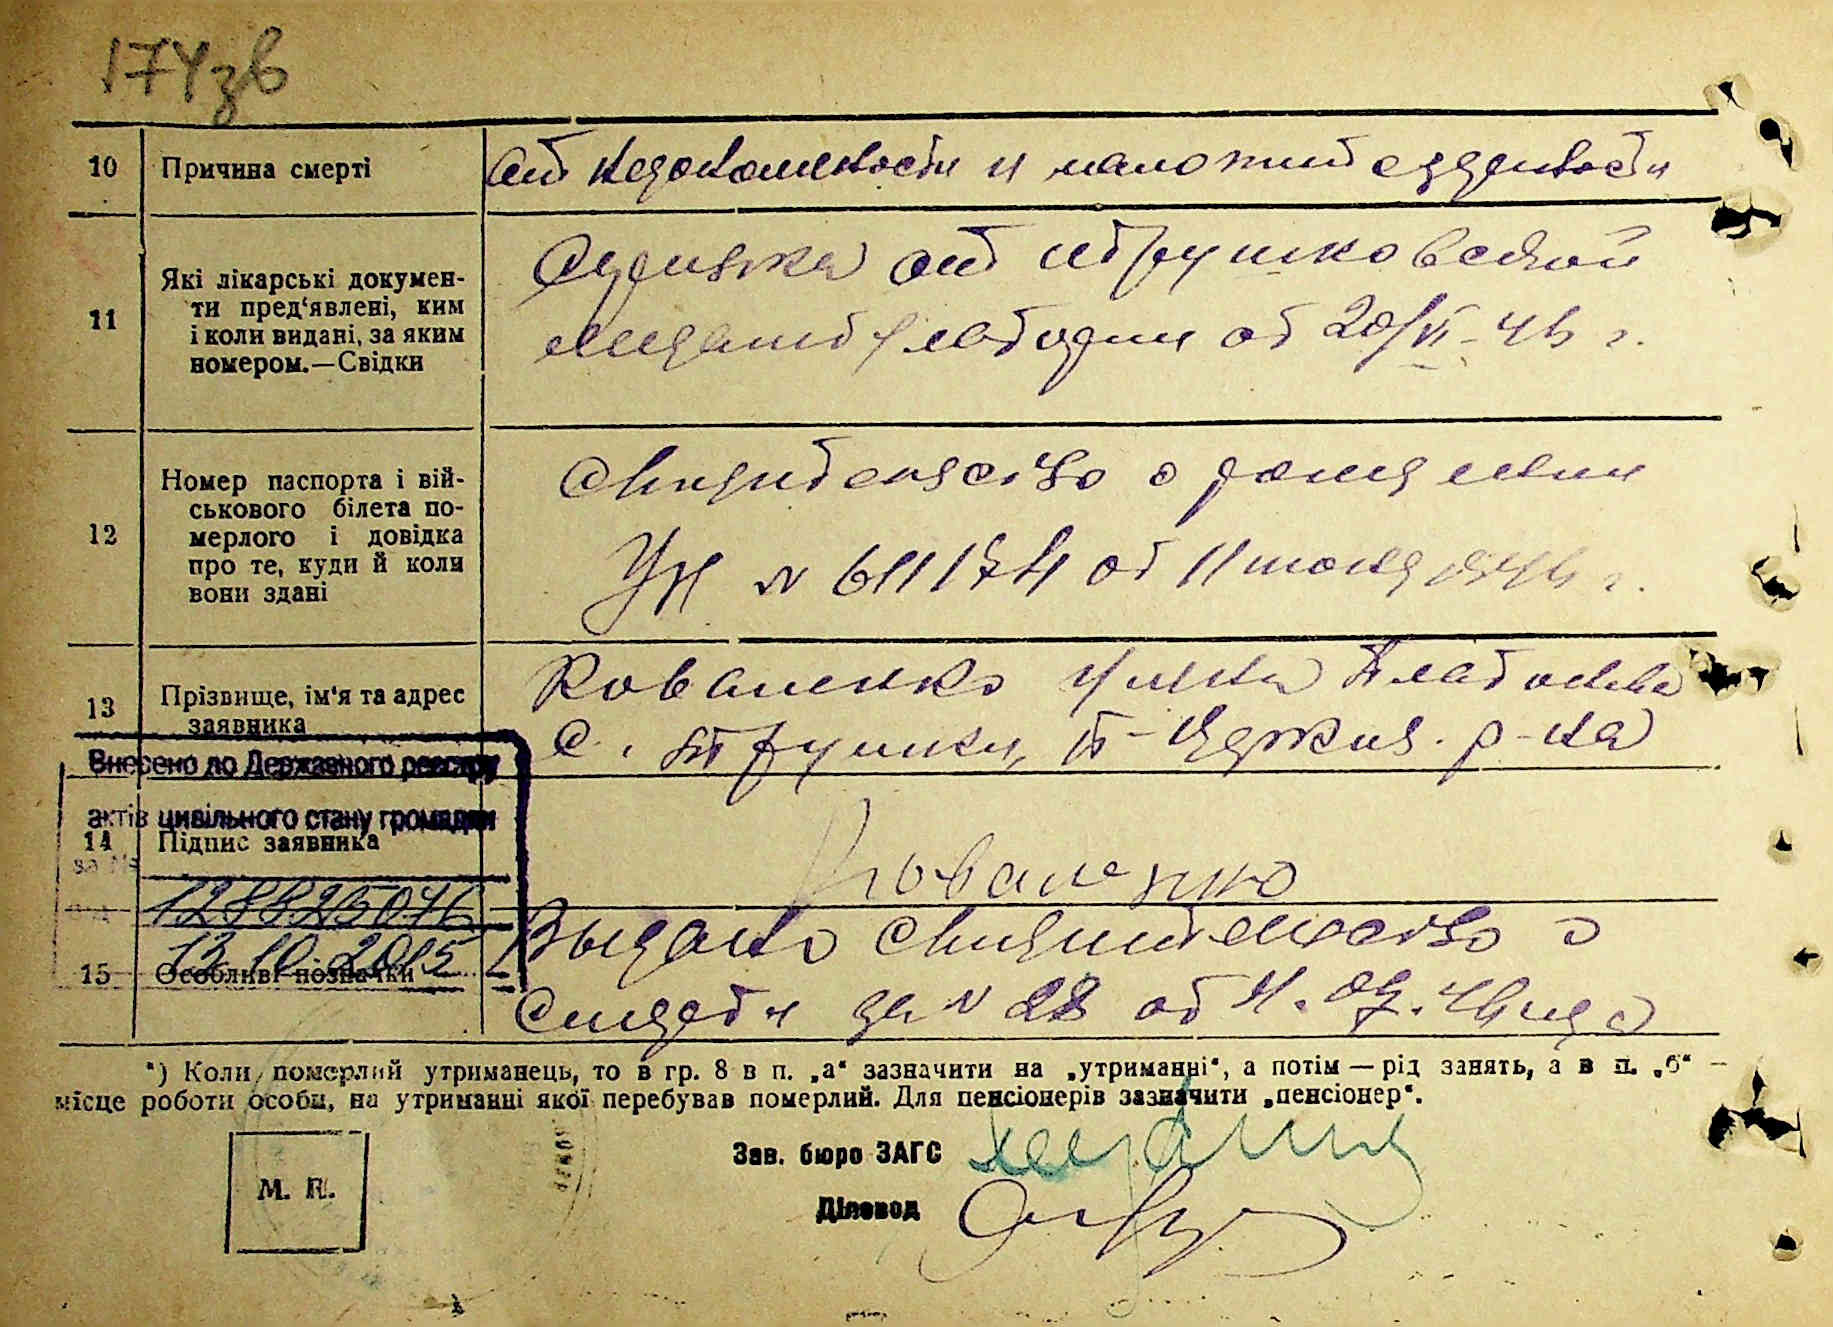 174зв
10 Причина смерті
От недоношеності и маложит
11 Які лікарські докумен-
ти пред‘явлені, ким
і коли видані, за яким
номером.—Свідки
Справка от
от 20/VI-46 г.
12 Номер паспорта і вій-
ськового білета по-
мерлого і довідка
про те, куди й коли
вони здані
Свидетельство о рождении
УН № 611174 от 11 июля 1946 г.
13 Прізвище, ім‘я та адрес
заявника
Коваленко Платоновна
с. р-на
Внесено до Державного реєстру
актів цивільного стану громадян
14 Підпис заявника
за №
Коваленко
128825076
13.10.2015
15 Особливі позначки
Выдано свидетельство о
смерти за № 28 от 11.07.46 года
*) Коли померлий утриманець, то в гр. 8 в п. „а“ зазначити на „утриманні“, а потім — рід занять, а в п. „б“ —
місце роботи особи, на утриманні якої перебував померлий. Для пенсіонерів зазначити „пенсіонер“.
Зав. бюро ЗАГС
М. П.
Діловод